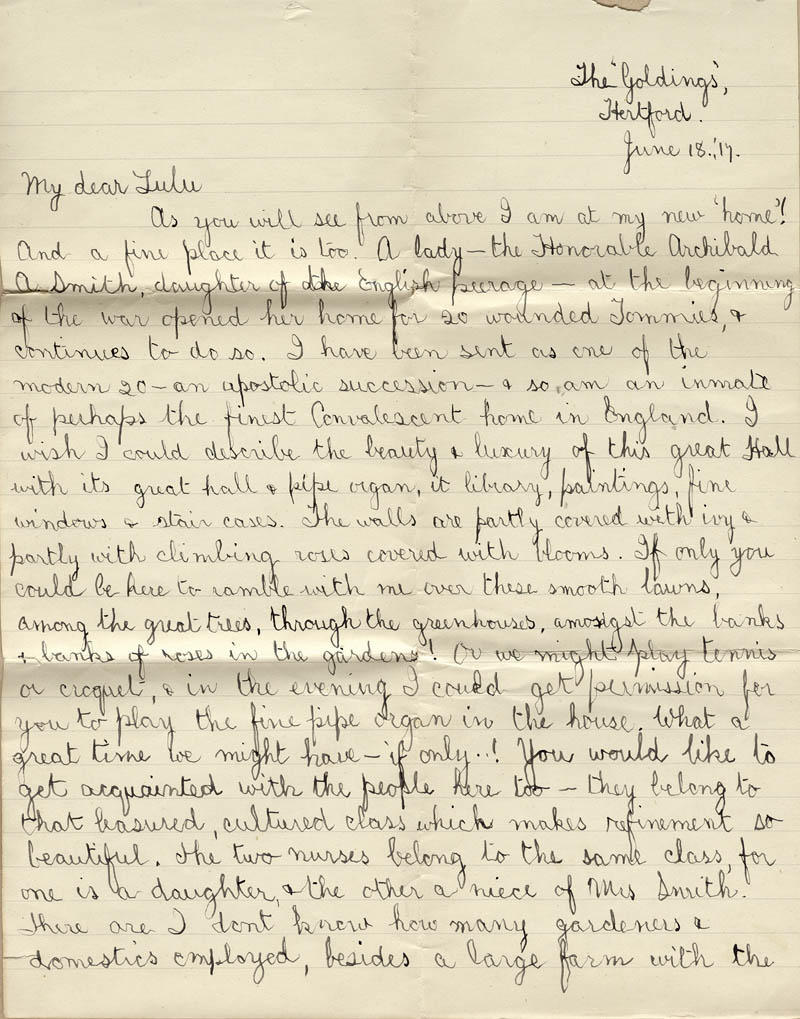 The "Goldings",
Hertford.
June 18.,'17.
My dear Lulu
As you will see from above I am at my new 'home'!
And a fine place it is too. A lady – the Honorable Archibald
A Smith, daughter of the English peerage – at the beginning
of the war opened her home for 20 wounded Tommies, &
continues to do so. I have been sent as one of the
modern 20 – an apostolic succession – & so am an inmate
of perhaps the finest Convalescent home in England. I
wish I could describe the beauty & luxury of this great Hall
with its great hall & pipe organ, it library, paintings, fine
windows & stair cases. The walls are partly covered with ivy &
partly with climbing roses covered with blooms. If only you
could be here to ramble with me over these smooth lawns,
among the great trees, through the greenhouses, amongst the banks
& banks of roses in the gardens! Or we might play tennis
or croquet, & in the evening I could get permission for
you to play the fine pipe organ in the house. What a
great time we might have – if only..! You would like to
get acquainted with the people here too – they belong to
that leasured, cultured class which makes refinement so
beautiful. The two nurses belong to the same class, for
one is a daughter, & the other a niece of Mrs Smith.
There are I dont know how many gardeners &
domestics employed, besides a large farm with the